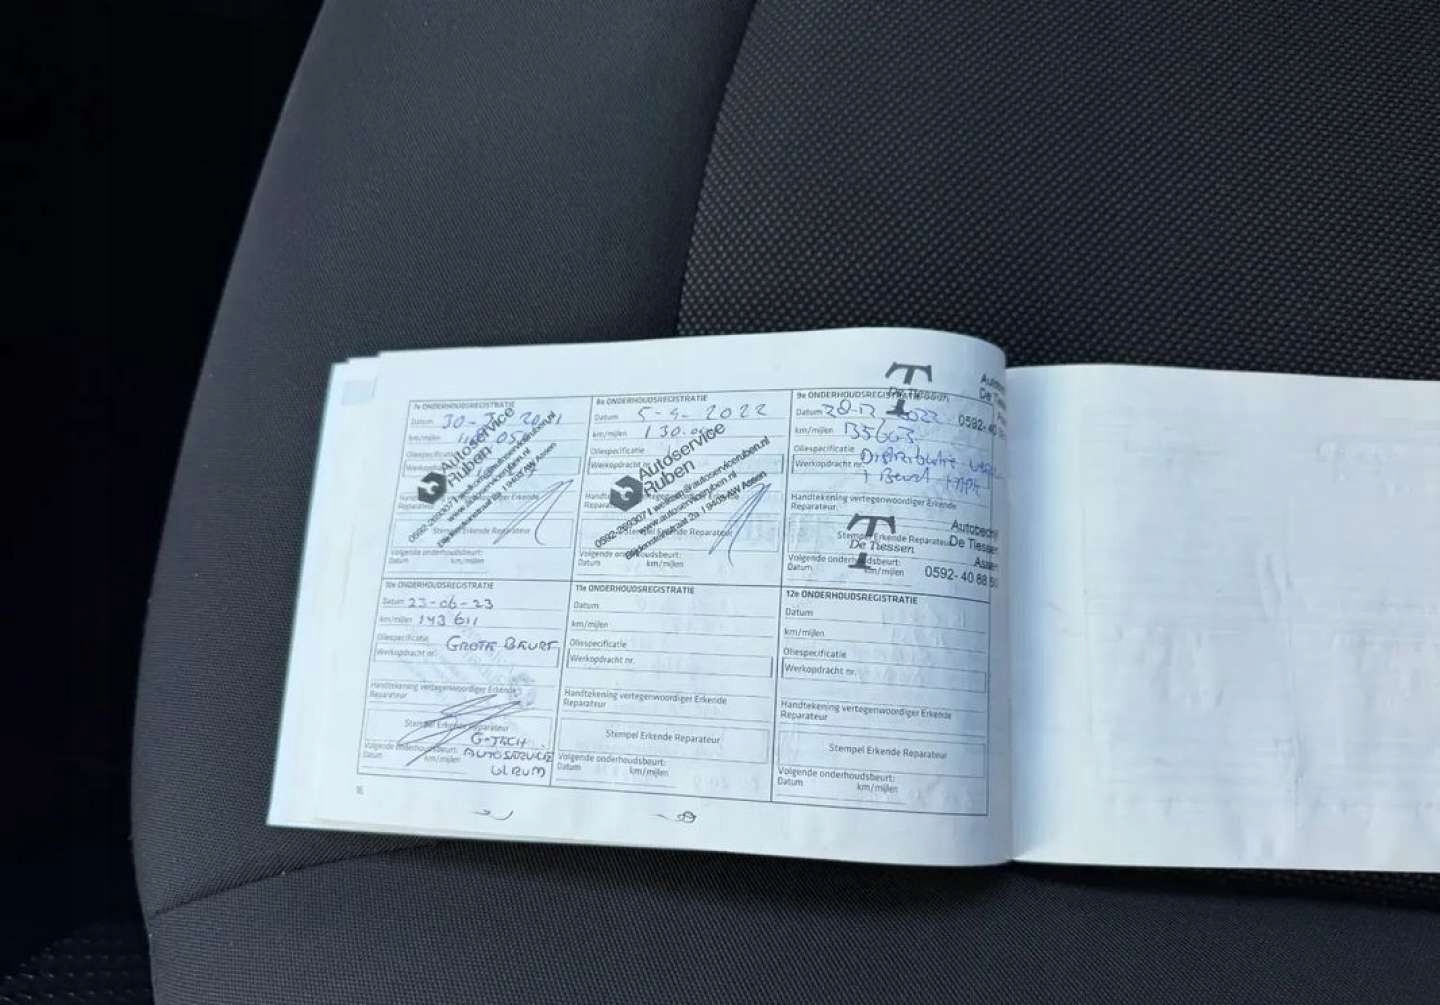 7e ONDERHOUDSREGISTRATIE
Datum 30-
km/mijlen
Oliespecificatie
Werkopdracht
Autoservice
Ruben
0592-269307 | welkom@autoserviceruben.nl
www.autoserviceruben.nl
Blijdensteinstraat 2a | 9403 AW Assen
Erkende Reparateur
Volgende onderhoudsbeurt:
Datum km/mijlen
8e ONDERHOUDSREGISTRATIE
Datum 5-4-2022
km/mijlen 130.
Oliespecificatie
Werkopdracht nr.
Autoservice
Ruben
0592-269307 | welkom@autoserviceruben.nl
www.autoserviceruben.nl
Blijdensteinstraat 2a | 9403 AW Assen
Erkende Reparateur
Volgende onderhoudsbeurt:
Datum km/mijlen
9e ONDERHOUDSREGISTRATIE
De Tiessen
De Ties
0592-40
Datum 28-12-2022
km/mijlen 135603
Oliespecificatie
Distributie
Werkopdracht nr.
+ Beurt + APK
Handtekening vertegenwoordiger Erkende
Reparateur
Stempel Erkende Reparateur
De Tiessen
Autobedrij
De Tiessen
Assen
0592-40 88 50
Volgende onderhoudsbeurt:
Datum km/mijlen
10e ONDERHOUDSREGISTRATIE
Datum 23-06-23
km/mijlen 143 611
Oliespecificatie
GROTE BEURT
Werkopdracht nr.
Handtekening vertegenwoordiger Erkende
Reparateur
Stempel Erkende Reparateur
G-TECH
AUTOSERVICE
ULRUM
Volgende onderhoudsbeurt:
Datum km/mijlen
11e ONDERHOUDSREGISTRATIE
Datum
km/mijlen
Oliespecificatie
Werkopdracht nr.
Handtekening vertegenwoordiger Erkende
Reparateur
Stempel Erkende Reparateur
Volgende onderhoudsbeurt:
Datum km/mijlen
12e ONDERHOUDSREGISTRATIE
Datum
km/mijlen
Oliespecificatie
Werkopdracht nr.
Handtekening vertegenwoordiger Erkende
Reparateur
Stempel Erkende Reparateur
Volgende onderhoudsbeurt:
Datum km/mijlen
16